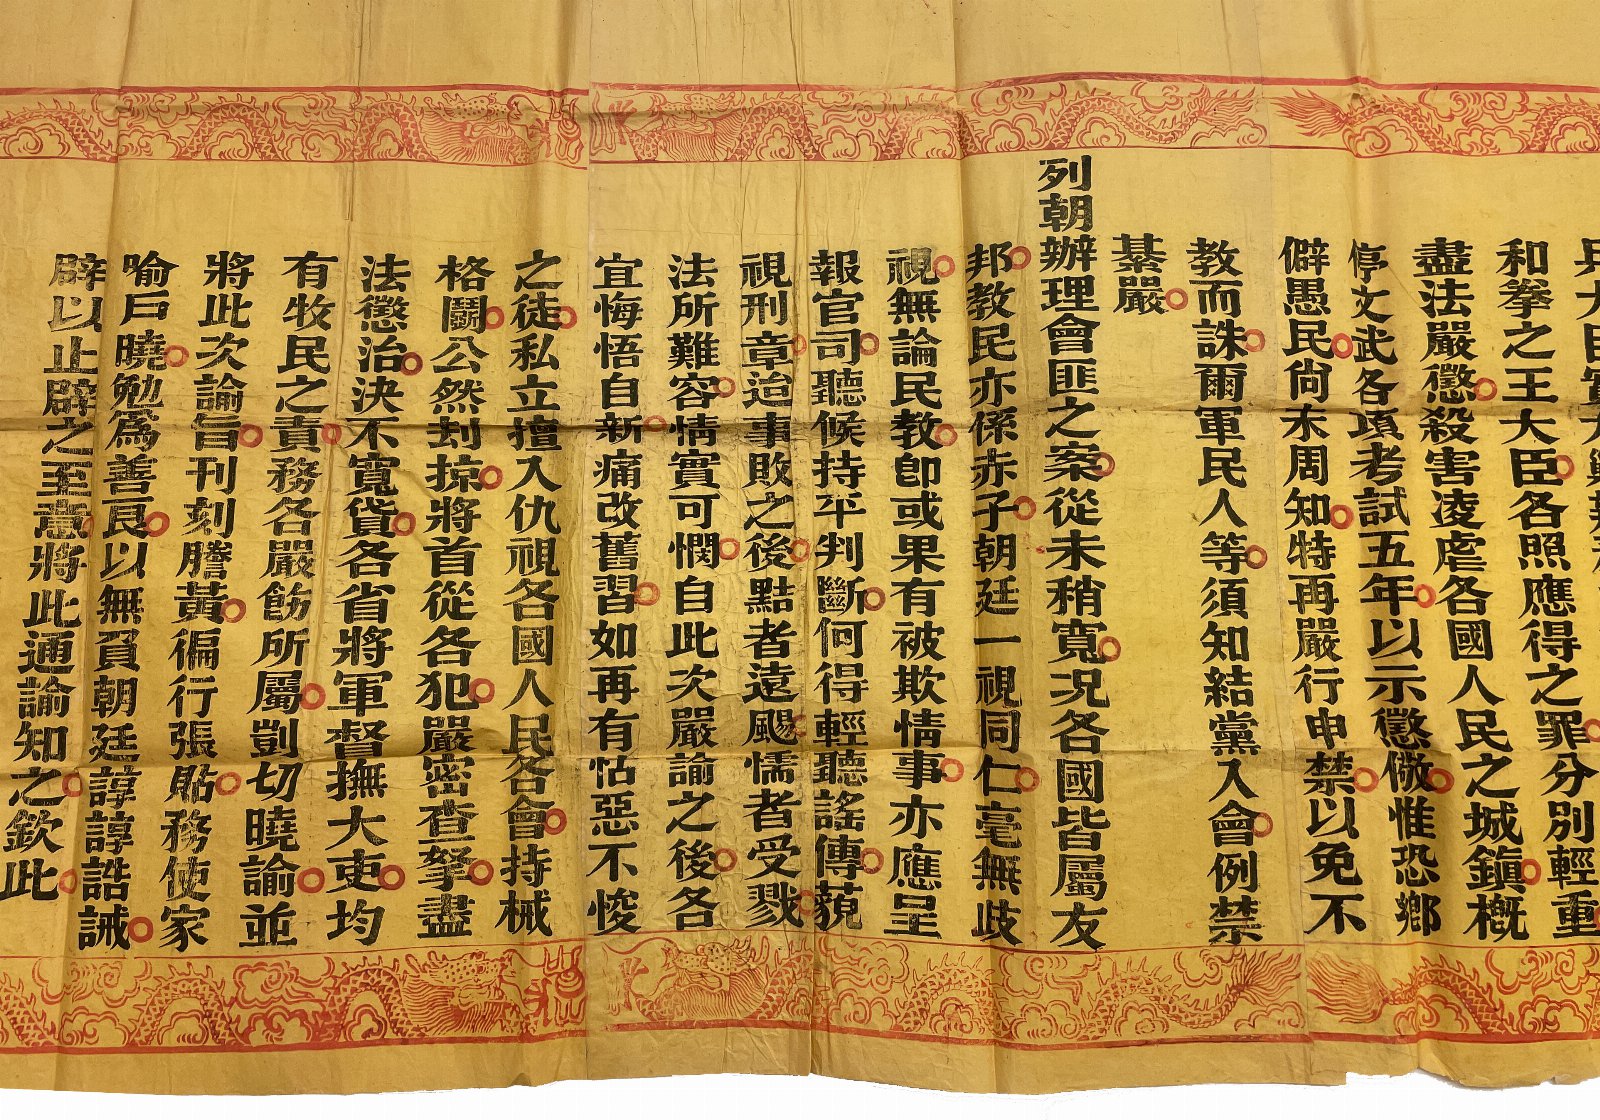 和拳之王大臣各照應得之罪分別輕重
盡法嚴懲殺害凌虐各國人民之城鎮概
停文武各項考試五年以示懲儆惟恐鄉
僻愚民尚未周知特再嚴行申禁以免不
教而誅爾軍民人等須知結黨入會例禁
綦嚴
列朝辦理會匪之案從未稍寬況各國皆屬友
邦教民亦係赤子朝廷一視同仁毫無歧
視無論民教卽或果有被欺情事亦應呈
報官司聽候持平判斷何得輕聽謠傳藐
視刑章迨事敗之後黠者遠颺懦者受戮
法所難容情實可憫自此次嚴諭之後各
宜悔悟自新痛改舊習如再有怙惡不悛
之徒私立擅入仇視各國人民各會持械
格鬭公然刦掠將首從各犯嚴密查拏盡
法懲治決不寬貸各省將軍督撫大吏均
有牧民之責務各嚴飭所屬剴切曉諭並
將此次諭旨刊刻謄黃徧行張貼務使家
喻戶曉勉爲善良以無負朝廷諄諄誥誡
辟以止辟之至意將此通諭知之欽此